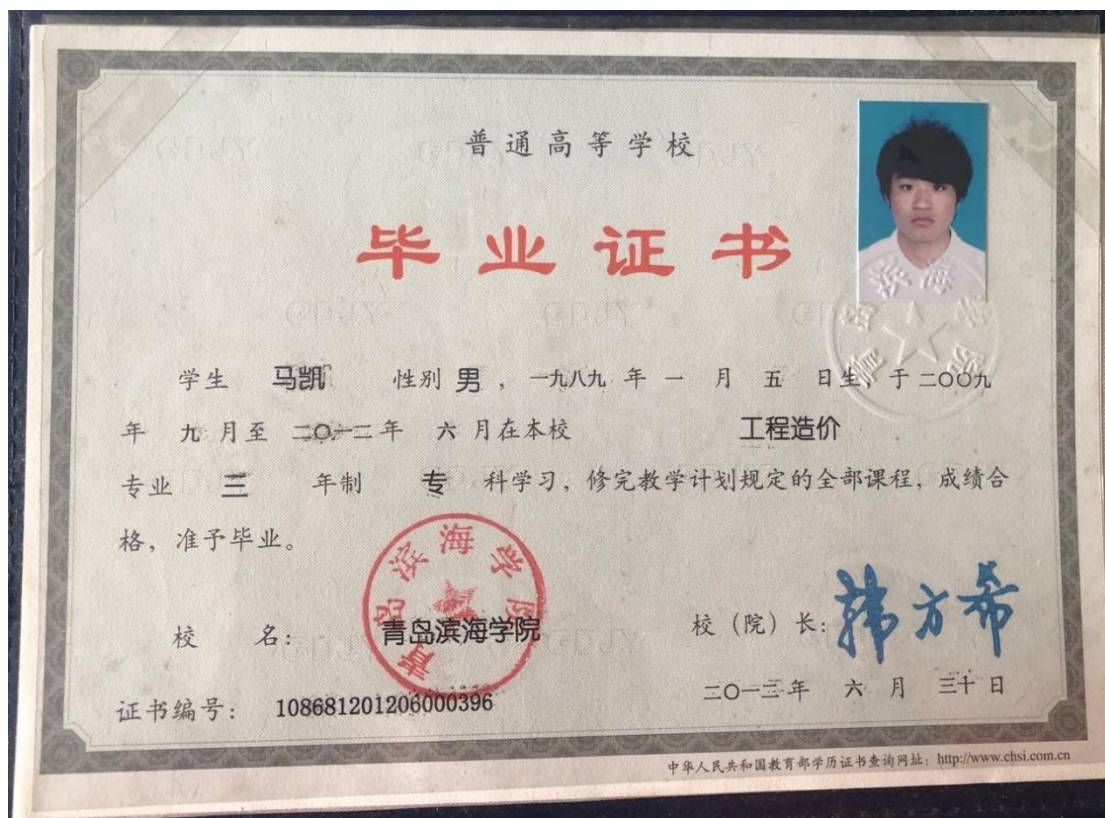 普通高等学校
毕业证书
学生 马凯 性别 男 ，一九八九 年 一 月 五 日生，于二〇〇九
年 九 月至 二〇一二年 六 月在本校 工程造价
专业 三 年制 专 科学习，修完教学计划规定的全部课程，成绩合
格，准予毕业。
青岛滨海学院
校 名： 青岛滨海学院
校（院）长：韩方希
二〇一二年 六 月 三十 日
证书编号： 108681201206000396
中华人民共和国教育部学历证书查询网址：http://www.chsi.com.cn